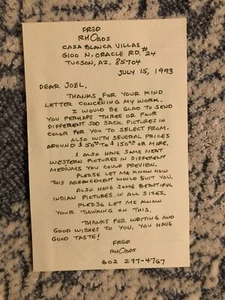 FRED
RHOADS
CASA BLANCA VILLAS
6100 N. ORACLE RD. #24
TUCSON, AZ. 85704
JULY 15, 1993
DEAR JOEL,
THANKS FOR YOUR KIND
LETTER CONCERNING MY WORK.
I WOULD BE GLAD TO SEND
YOU PERHAPS THREE OR FOUR
DIFFERENT SAD SACK PICTURES IN
COLOR FOR YOU TO SELECT FROM.
ALSO WITH SEVERAL PRICES
AROUND $50.00 TO $150.00 OR MORE.
I ALSO HAVE SOME NEAT
WESTERN PICTURES IN DIFFERENT
MEDIUMS YOU COULD PREVIEW.
PLEASE LET ME KNOW HOW
THIS ARRANGEMENT WOULD SUIT YOU.
ALSO HAVE SOME BEAUTIFUL
INDIAN PICTURES IN ALL SIZES.
PLEASE LET ME KNOW
YOUR THINKING ON THIS.
THANKS FOR WRITING AND
GOOD WISHES TO YOU. YOU HAVE
GOOD TASTE!
FRED
RHOADS
602 297-4767